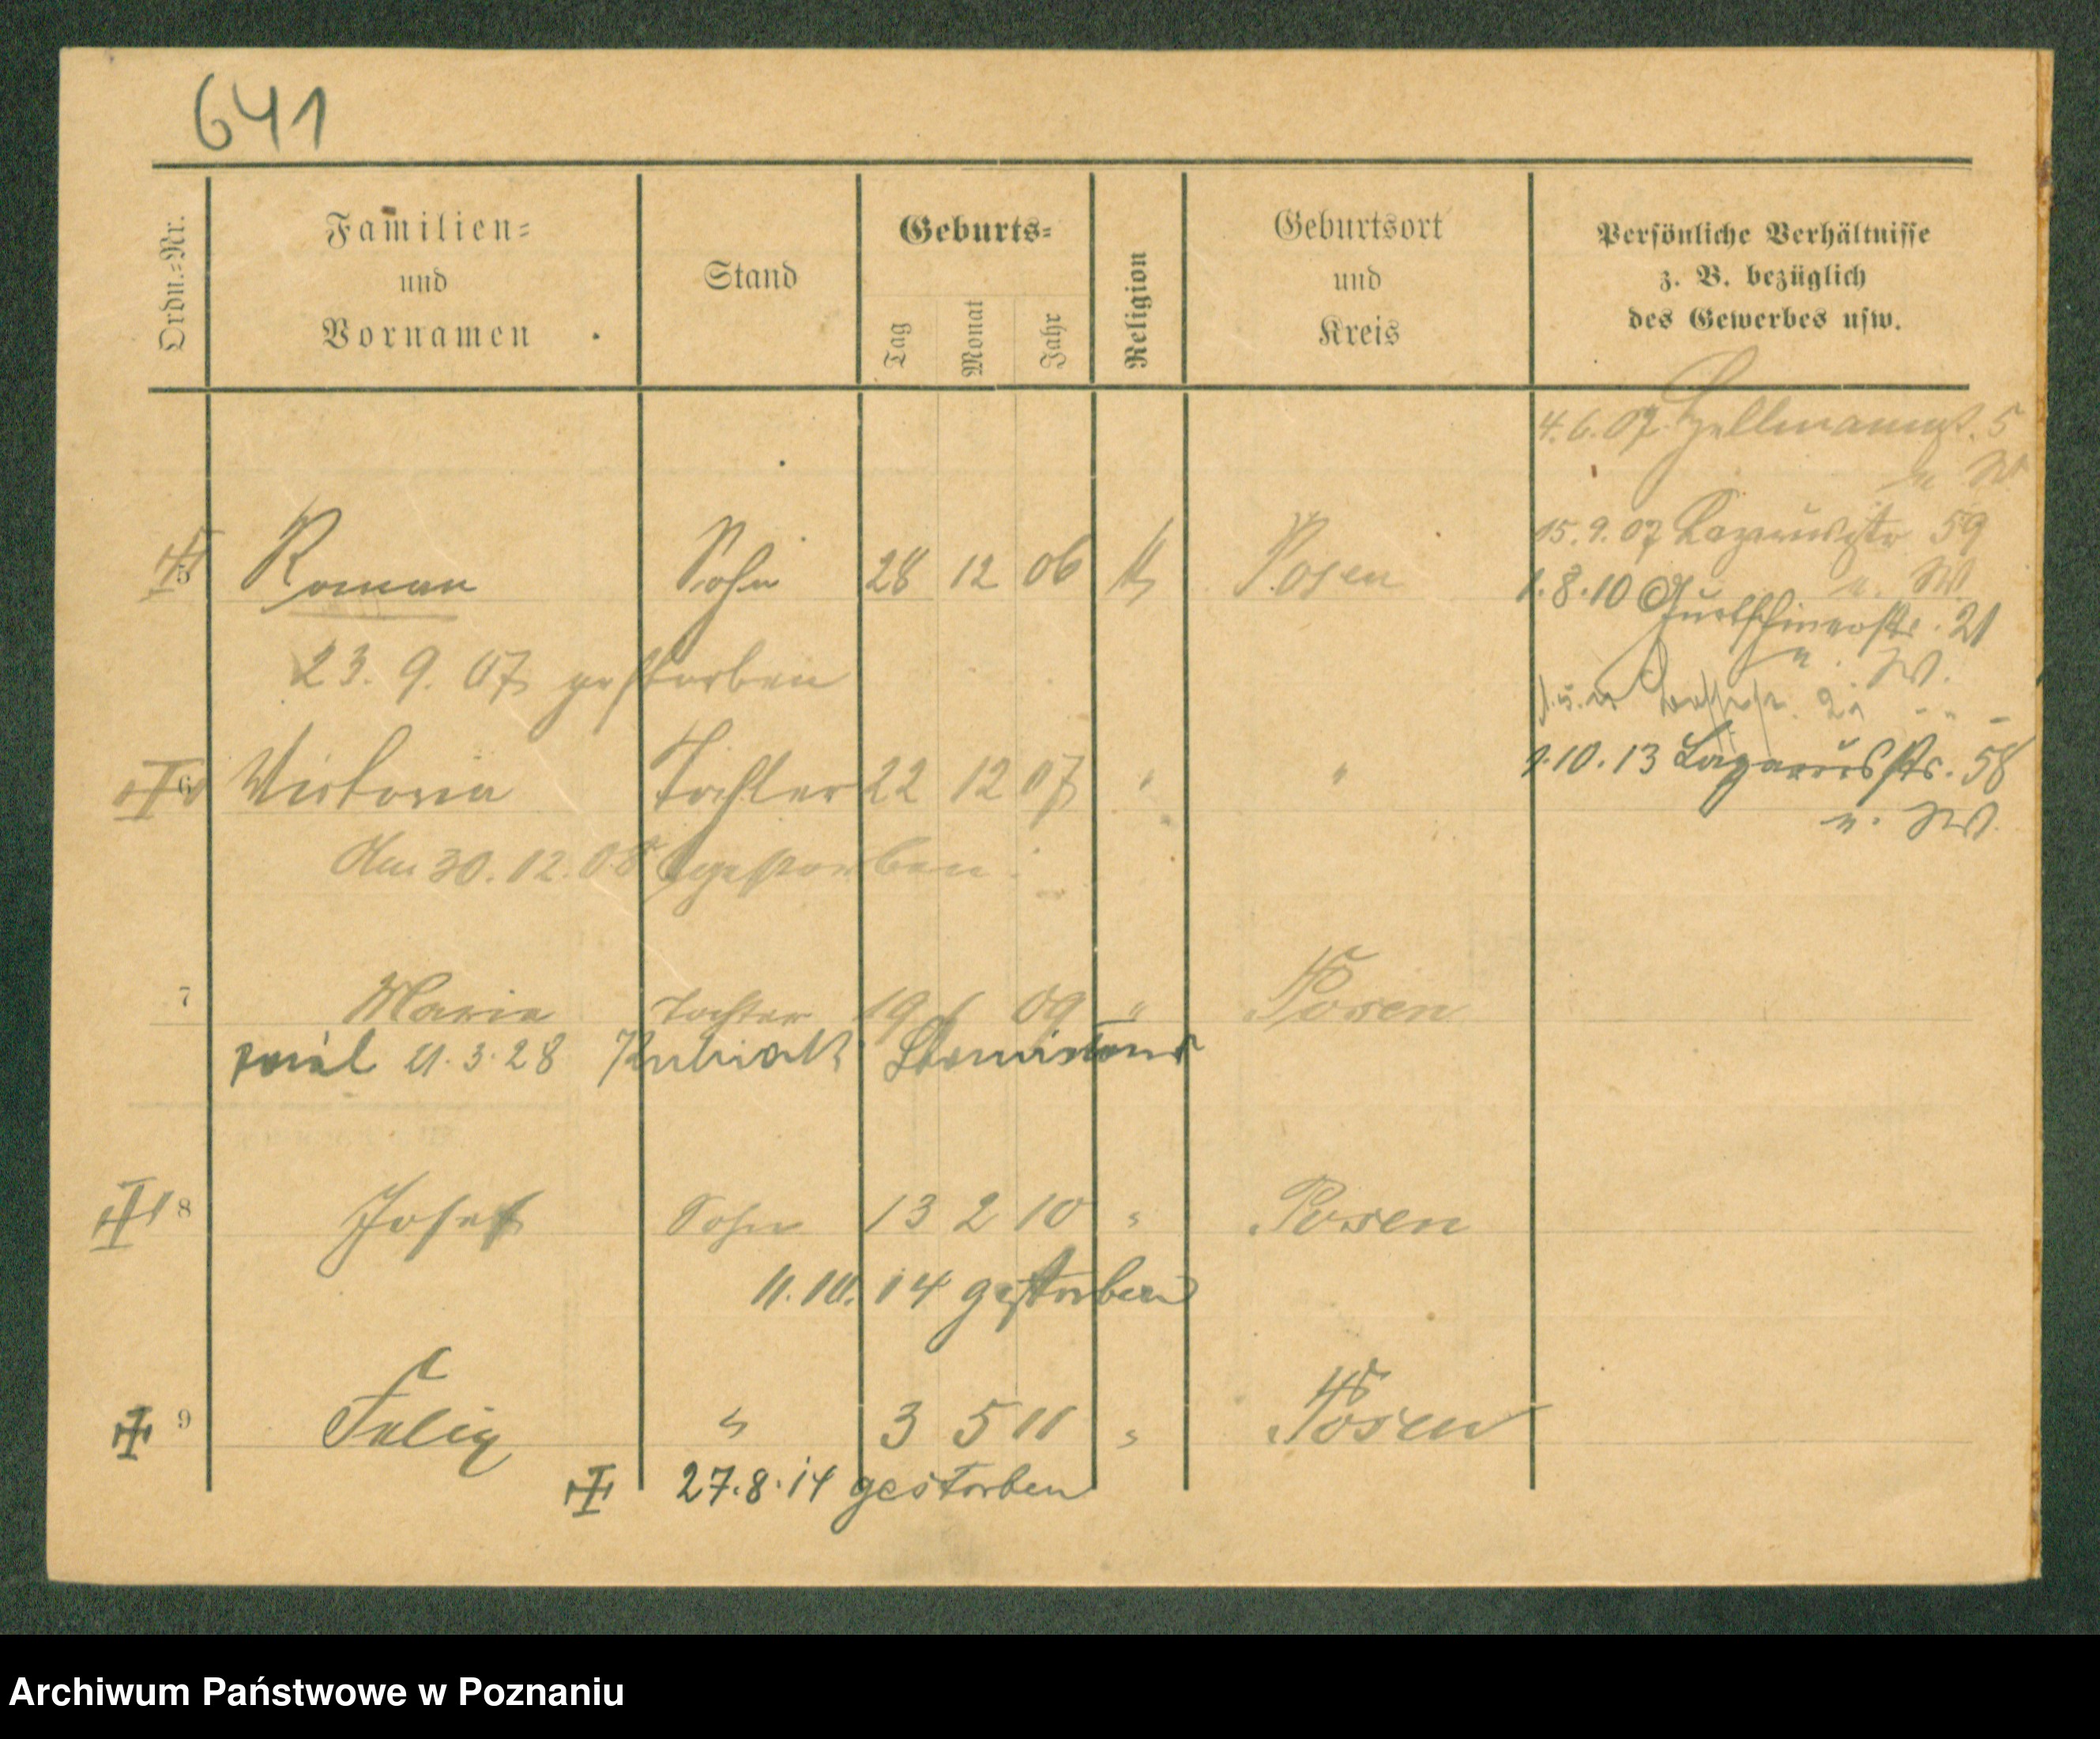 641
Ordn.=Nr.
Familien=
und
Vornamen
Stand
Geburts=
Tag
Monat
Jahr
Religion
Geburtsort
und
Kreis
Persönliche Verhältnisse
z. B. bezüglich
des Gewerbes usw.
4.6.07. 5
5 Roman Sohn 28 12 06 Posen
15.9.07 Lazarusstr 59
23.9.07 gestorben
1.8.10 21
6 Victoria Tochter 22 12 07 " "
1.10.13 Lazarusstr. 58
Am 30.12.08 gestorben
7 Maria Tochter 19 09 " Posen
21.3.28 Kubiak Stanisław
8 Josef Sohn 13 2 10 " Posen
11.10.14 gestorben
9 Felix " 3 5 11 " Posen
27.8.14 gestorben
Archiwum Państwowe w Poznaniu